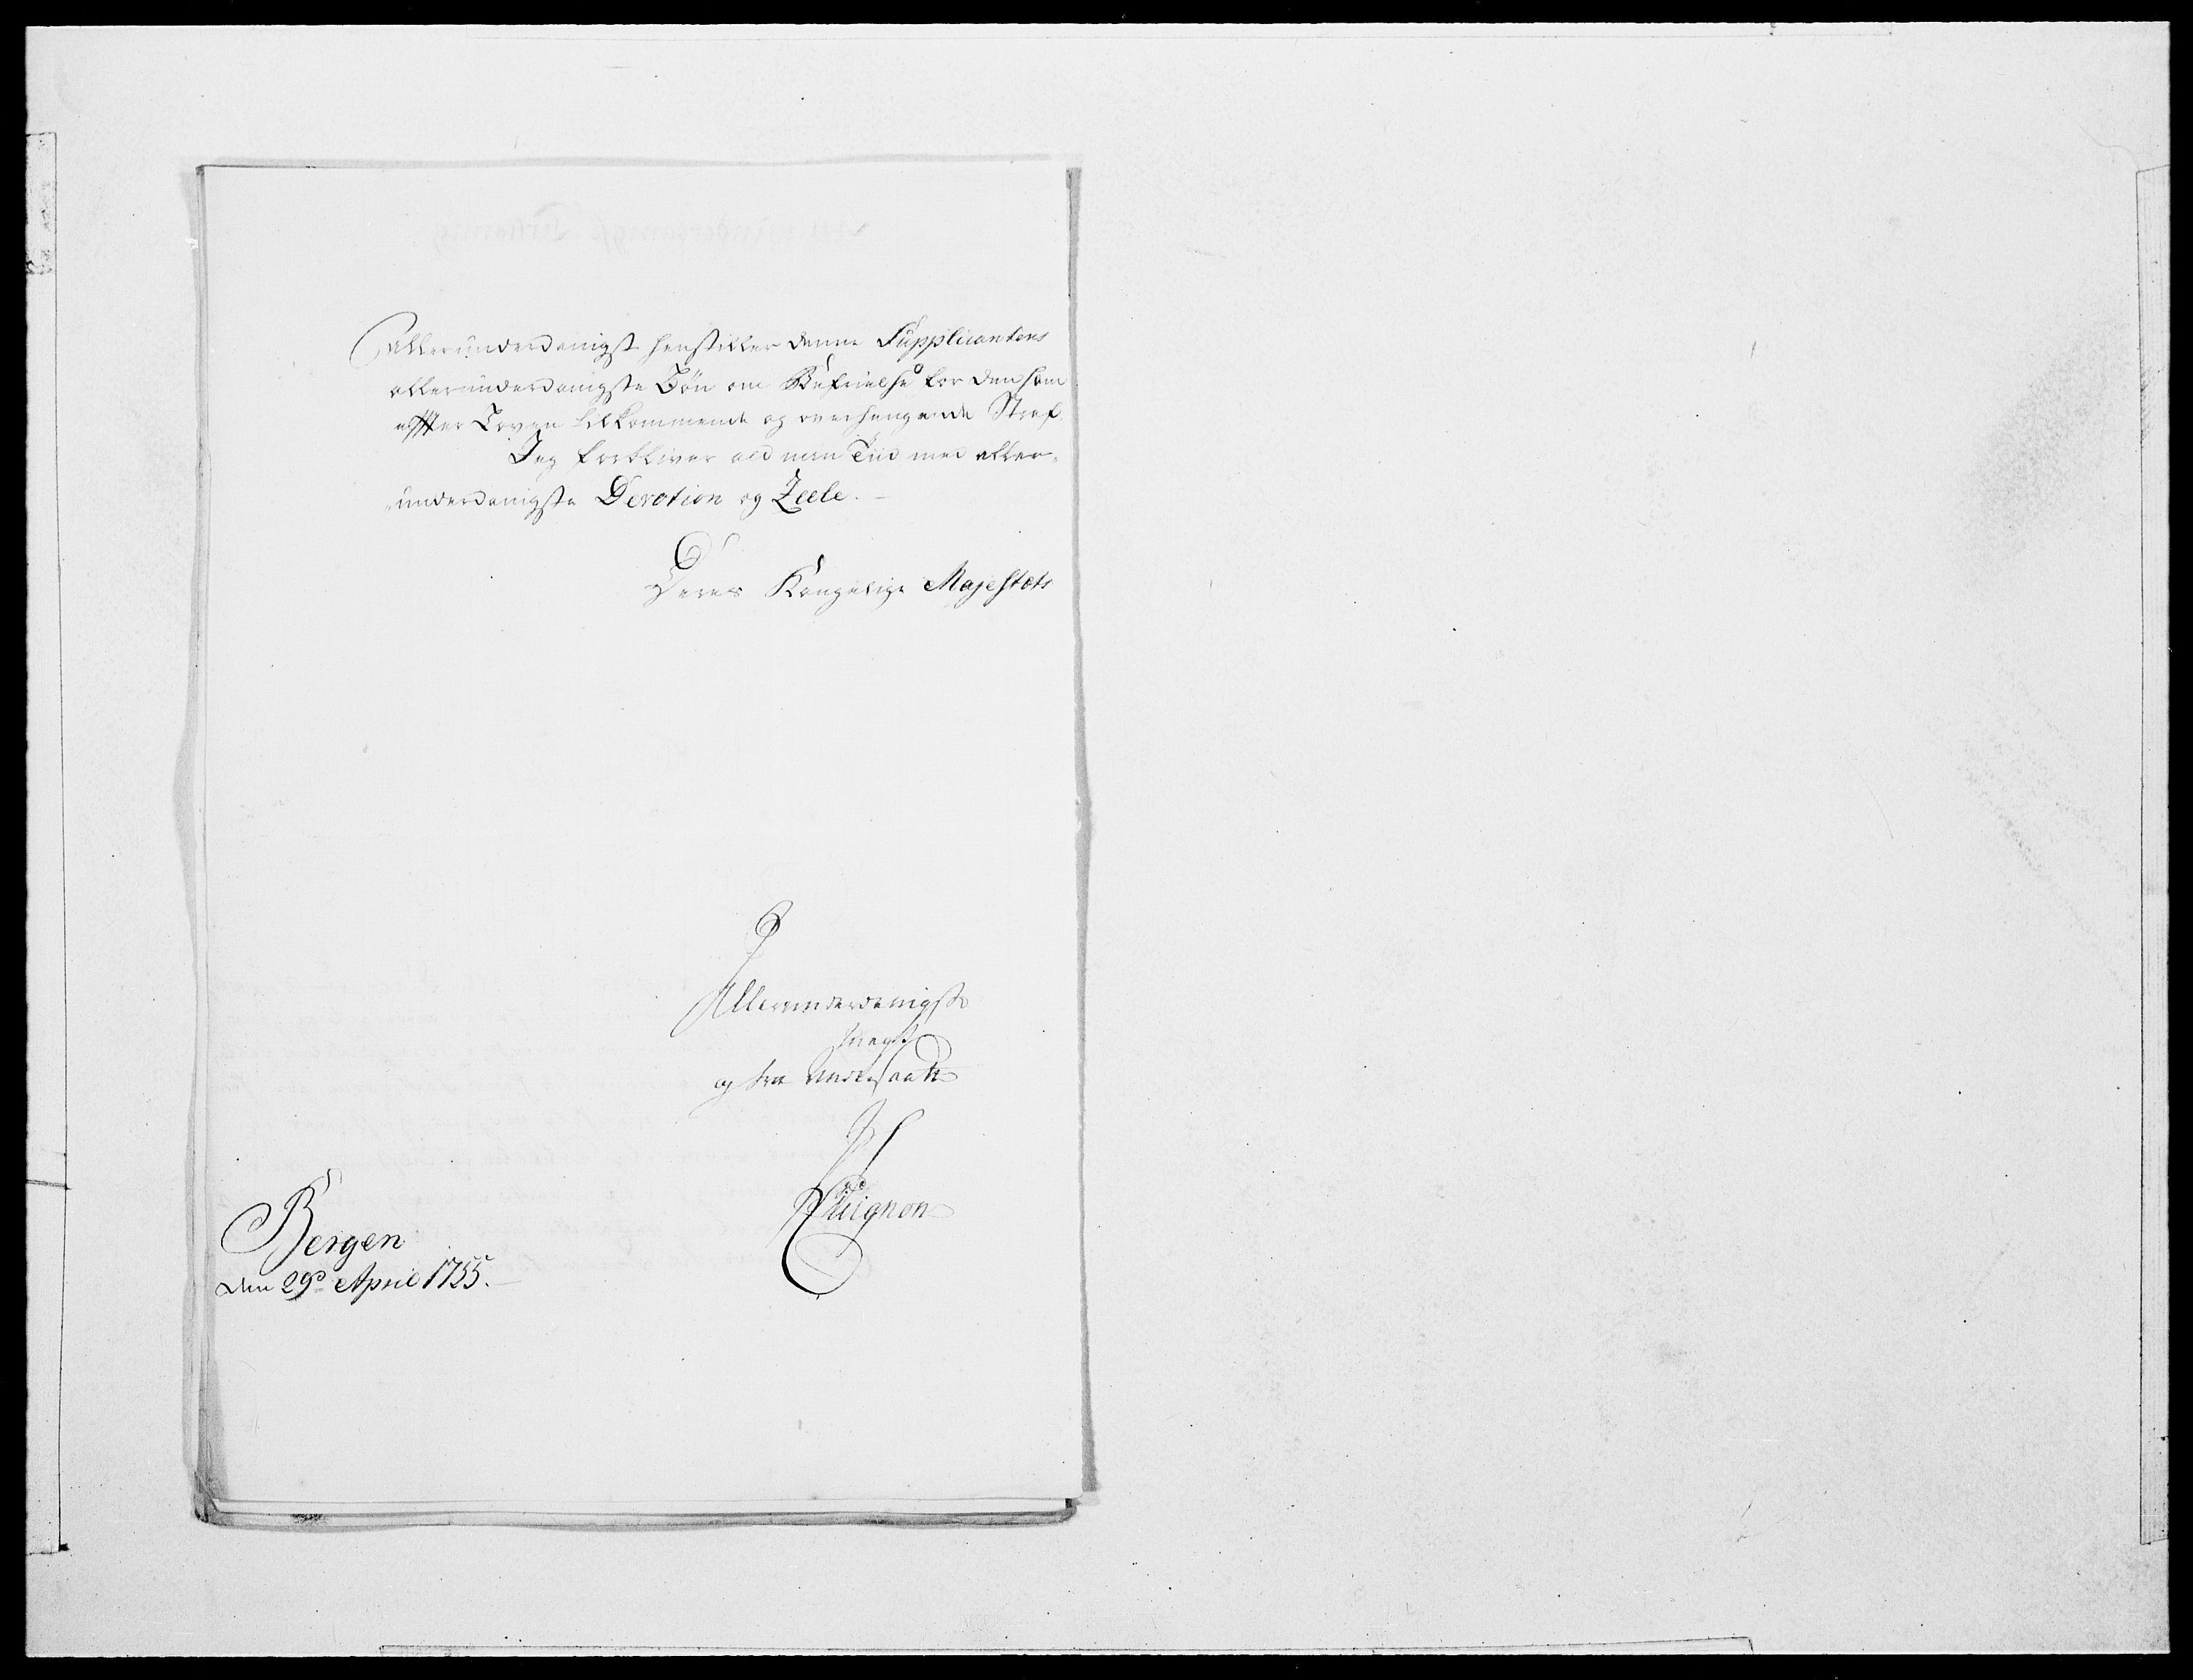 Allerunderdanigst henstiller denne Supplicantens
allerunderdanigste Bön om Befrielse for den ham
effter Loven tilkommende og overhengende Straf.
Jeg forbliver ald min Tiid med aller-
underdanigste Devotion og Zeele.
Deres Kongelige Majestets
Allerunderdanigste
og troe Undersaatt
Bergen
den 29de April 1755.